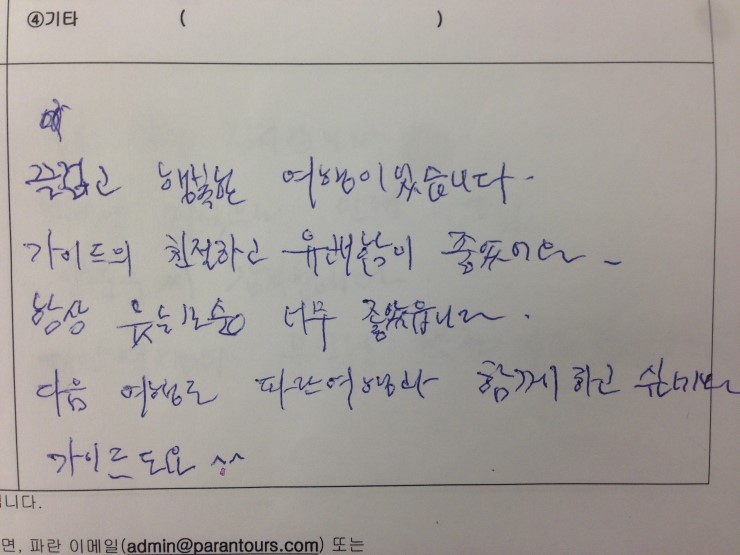 ④기타 ( )
즐겁고 행복한 여행이였습니다.
가이드의 친절하고 유쾌함이 좋았어요~
항상 웃는모습 너무 좋았읍니다.
다음 여행도 파란여행과 함께 하고 싶네요
가이드도요 ^^
니다.
면, 파란 이메일(admin@parantours.com) 또는